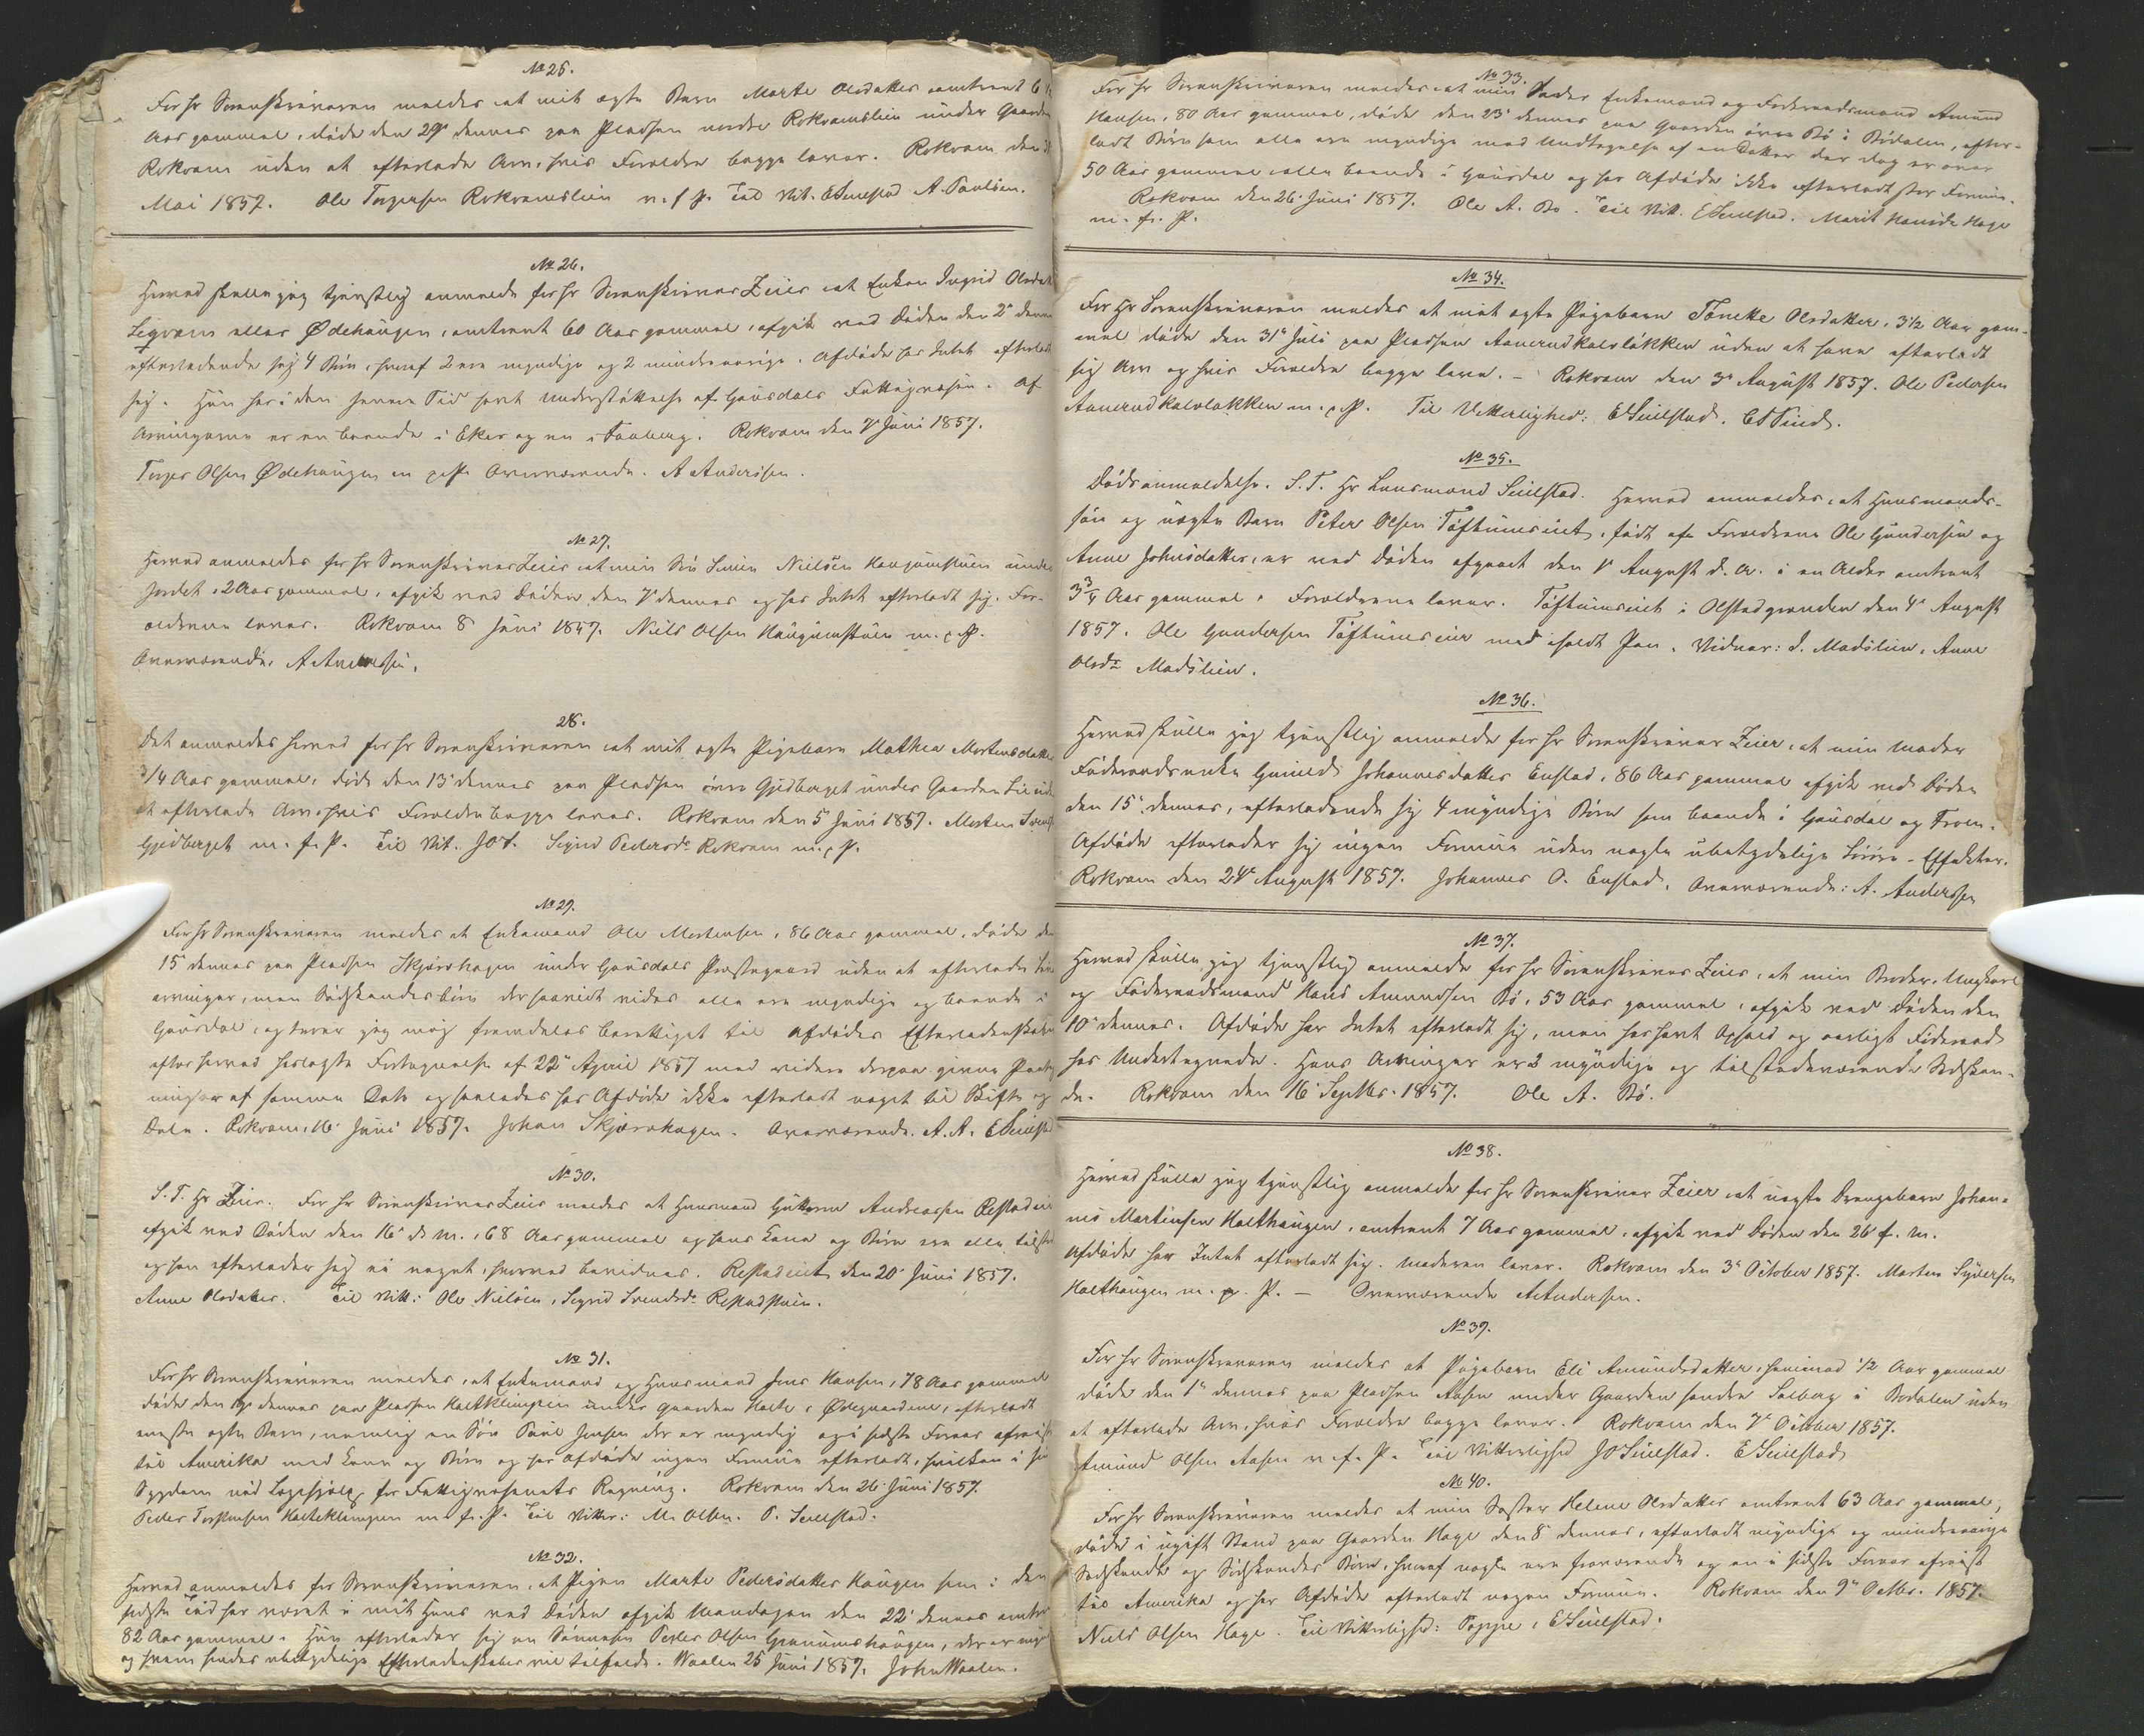 No 25.
For Hr Sorenskriveren meldes at mit ægte Barn Marte Olsdatter omtrent 6
Aar gammel, døde den 29de dennes paa Pladsen nordre Rokvamslien under Gaarden
Rokvam uden at efterlade Arv, hvis Forældre begge lever. Rokvam den
Mai 1857. Ole Torgersen Rokvamslien m. f. P. Til Vit. E Seielstad A. Paulsen.
No 26.
Herved skulle jeg tjenstlig anmelde for Hr Sorenskriver Zeier at Enken Ingrid Olsdatter
eller Ødehaugen, omtrent 60 Aar gammel, afgik ved Døden den 2den dennes
efterladende sig 4 Børn, hvoraf 2 ere myndige og 2 mindreaarige. Afdøde har Intet efterladt
sig. Hun har i den senere Tid havt Understøttelse af Gausdals Fattigvæsen. Af
Arvingerne er en boende i Eker og en i Faaberg. Rokvam den 7de Juni 1857.
Torger Olsen Ødehaugen Overværende. A Anderssen.
No 27.
Herved anmeldes for Hr Sorenskriver Zeier at min Søn Simen Nielsen Haugumstuen under
Jordet, 2 Aar gammel, afgik ved Døden den 7de dennes og har Intet efterladt sig. For-
ældrene lever. Rokvam 8de Juni 1857. Niels Olsen Haugumstuen m. p. P.
Overværende, A Anderssen.
28.
Det anmeldes herved for Hr Sorenskriveren at mit ægte Pigebarn Mathea Mortensdatter
3/4 Aar gammel, døde den 13de dennes paa Pladsen øvre Gjedberget under Gaarden Lie uden
at efterlade Arv, hvis Forældre begge lever. Rokvam den 5 Juni 1857. Morten
Gjedberget m. f. P. Til Vit. Sigrid Pedersdr Rokvam m. p. P.
No 29.
For Hr Sorenskriveren meldes at Enkemand Ole Mortensen, 86 Aar gammel, døde den
15de dennes paa Pladsen Skjærshagen under Gausdals Præstegaard uden at efterlade Livs
arvinger, men Sødskendebørn der saavidt vides alle ere myndige og boende i
Gausdal, og tror jeg mig fremdeles berettiget til Afdødes Efterladenskaber
efter herved heslagte Fortegnelse af 22de April 1857 med videre derpaa givne
af samme Dato og saaledes har Afdøde ikke efterladt noget til Skifte og
Dele. Rokvam, 16 Juni 1857. Johan Skjærshagen. Overværende. A. A. E Seielstad
No 30.
S. T. Hr Zeier. For Hr Sorenskriver Zeier meldes at Huusmand Guttorm Andreassen Refstadeiet
afgik ved Døden den 16de ds M., 68 Aar gammel og hans Kone og Børn ere alle
og han efterlader sig ei noget, hvorved bevidnes. Refstadeiet den 20de Juni 1857.
Anne Olsdatter. Til Vitt: Ole Nielsen, Sigrid Svendsdr Refstadstuen.
No 31.
For Hr Sorenskriveren meldes, at Enkemand og Huusmand Jens Hansen, 78 Aar gammel
døde den dennes paa Pladsen Holteklimpen under Gaarden Holte i Ødegaardene, efterladt
eneste ægte Barn, nemlig en Søn Paul Jensen der er myndig og i sidste Foraar afreist
til Amerika med Kone og Børn og har Afdøde ingen Formue efterladt, hvilken i sin
Sygdom nød Lægehjælp for Fattigvæsenets Regning. Rokvam den 26de Juni 1857.
Peder Torstensen Holteklimpen m. f. P. Til Vitter: M. Olsen. P. Seielstad.
No 32.
Herved anmeldes for Sorenskriveren, at Pigen Marte Pedersdatter Haugen som i den
sidste Tid har været i mit Huus ved Døden afgik Mandagen den 22de dennes omtrent
82 Aar gammel. Hun efterlader sig en Sønnesøn Peder Olsen Granumshaugen, der er
og hvem hendes ubetydelige Efterladenskaber vil tilfalde. Waalen 25 Juni 1857. John Waalen.
No 33.
For Hr Sorenskriveren meldes at min Fader Enkemand og Føderaadsmand Amund
Hansen, 80 Aar gammel, døde den 23de dennes paa Gaarden øvre Bø i Bødalen, efter-
ladt Børn som alle ere myndige med Undtagelse af en Datter der dog er over
50 Aar gammel alle boende i Gausdal og har Afdøde ikke efterladt stor Formue.
Rokvam den 26de Juni 1857. Ole A. Bø. Til Vitt. E Seielstad. Marit Hansdr Hage
m. f. P.
No 34.
For Hr Sorenskriveren meldes at mit ægte Pigebarn Tønette Olsdatter, 3 1/2 Aar gam-
mel døde den 31te Juli paa Pladsen Aanerudkalvløkken uden at have efterladt
sig Arv og hvis Forældre begge leve. - Rokvam den 3de August 1857. Ole Pedersen
Aanerudkalvløkken m. p. P. Til Vitterlighed: E Seielstad.
No 35.
Dødsanmeldelse. S. T. Hr Lensmand Seielstad. Herved anmeldes, at Huusmands-
søn og uægte Barn Peter Olsen Toftumseiet, født af Forældrene Ole Gundersen og
Anne Johnsdatter, er ved Døden afgaaet den 1ste August d. A. i en Alder omtrent
3 3/4 Aar gammel. Forældrene lever. Toftumseiet i Olstadgrenden den 4de August
1857. Ole Gundersen Toftumseiet med iholdt Pen. Vidner: J. Madslien, Anne
Olsdr Madslien.
No 36.
Herved skulle jeg tjenstlig anmelde for Hr Sorenskriver Zeier, at min Moder
Føderaadsenke Gunild Johannesdatter Enstad, 86 Aar gammel afgik ved Døden
den 15de dennes, efterladende sig 4 myndige Børn som boende i Gausdal og Fron.
Afdøde efterlader sig ingen Formue uden nogle ubetydelige Løsøre-Effekter.
Rokvam den 24de August 1857. Johannes O. Enstad. Overværende: A. Anderssen
No 37.
Herved skulle jeg tjenstlig anmelde for Hr Sorenskriver Zeier, at min Broder, Ungkarl
og Føderaadsmand Hans Amundsen Bø, 53 Aar gammel, afgik ved Døden den
10de dennes. Afdøde har Intet efterladt sig, men har havt Ophold og aarligt Føderaad
hos Undertegnede. Hans Arvinger er 2 myndige og tilstedeværende Sødsken-
de. Rokvam den 16de Septbr. 1857. Ole A. Bø.
No 38.
Herved skulle jeg tjenstlig anmelde for Hr Sorenskriver Zeier at uægte Drengebarn Johan-
nes Martinsen Holthaugen, omtrent 7 Aar gammel, afgik ved Døden den 26de f. M.
Afdøde har Intet efterladt sig. Moderen lever. Rokvam den 3de October 1857. Morten Syversen
Holthaugen m. p. P. - Overværende A Anderssen.
No 39.
For Hr Sorenskriveren meldes at Pigebarn Eli Amundsdatter, henimod 1/2 Aar gammel
døde den 1ste dennes paa Pladsen Aasen under Gaarden søndre Solberg i Bødalen uden
at efterlade Arv, hvis Forældre begge lever. Rokvam den 7de October 1857.
Amund Olsen Aasen m. f. P. Til Vitterlighed J O Seielstad. E Seielstad
No 40.
For Hr Sorenskriveren meldes at min Søster Helene Olsdatter omtrent 63 Aar gammel,
døde i ugift Stand paa Gaarden Hage den 8de dennes, efterladt myndige og mindreaarige
Sødskende og Sødskendes Børn, hvoraf nogle ere fraværende og en i sidste Foraar afreist
til Amerika og har Afdøde efterladt nogen Formue. Rokvam den 9de Octbr. 1857.
Niels Olsen Hage. Til Vitterlighed: Poppe, E Seielstad.